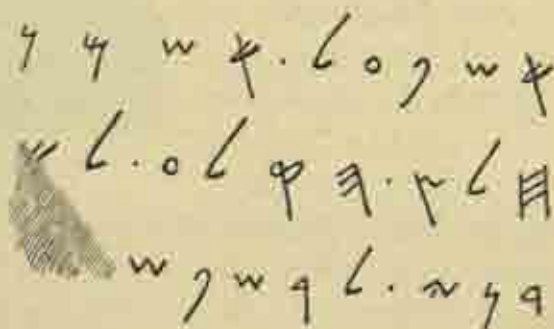 𐤀𐤔𐤐𐤏𐤋.𐤀𐤔𐤌𐤍
𐤇𐤋𐤑.𐤄𐤒𐤋𐤏.𐤋𐤀
𐤃𐤍𐤉.𐤋𐤓𐤔𐤐𐤔